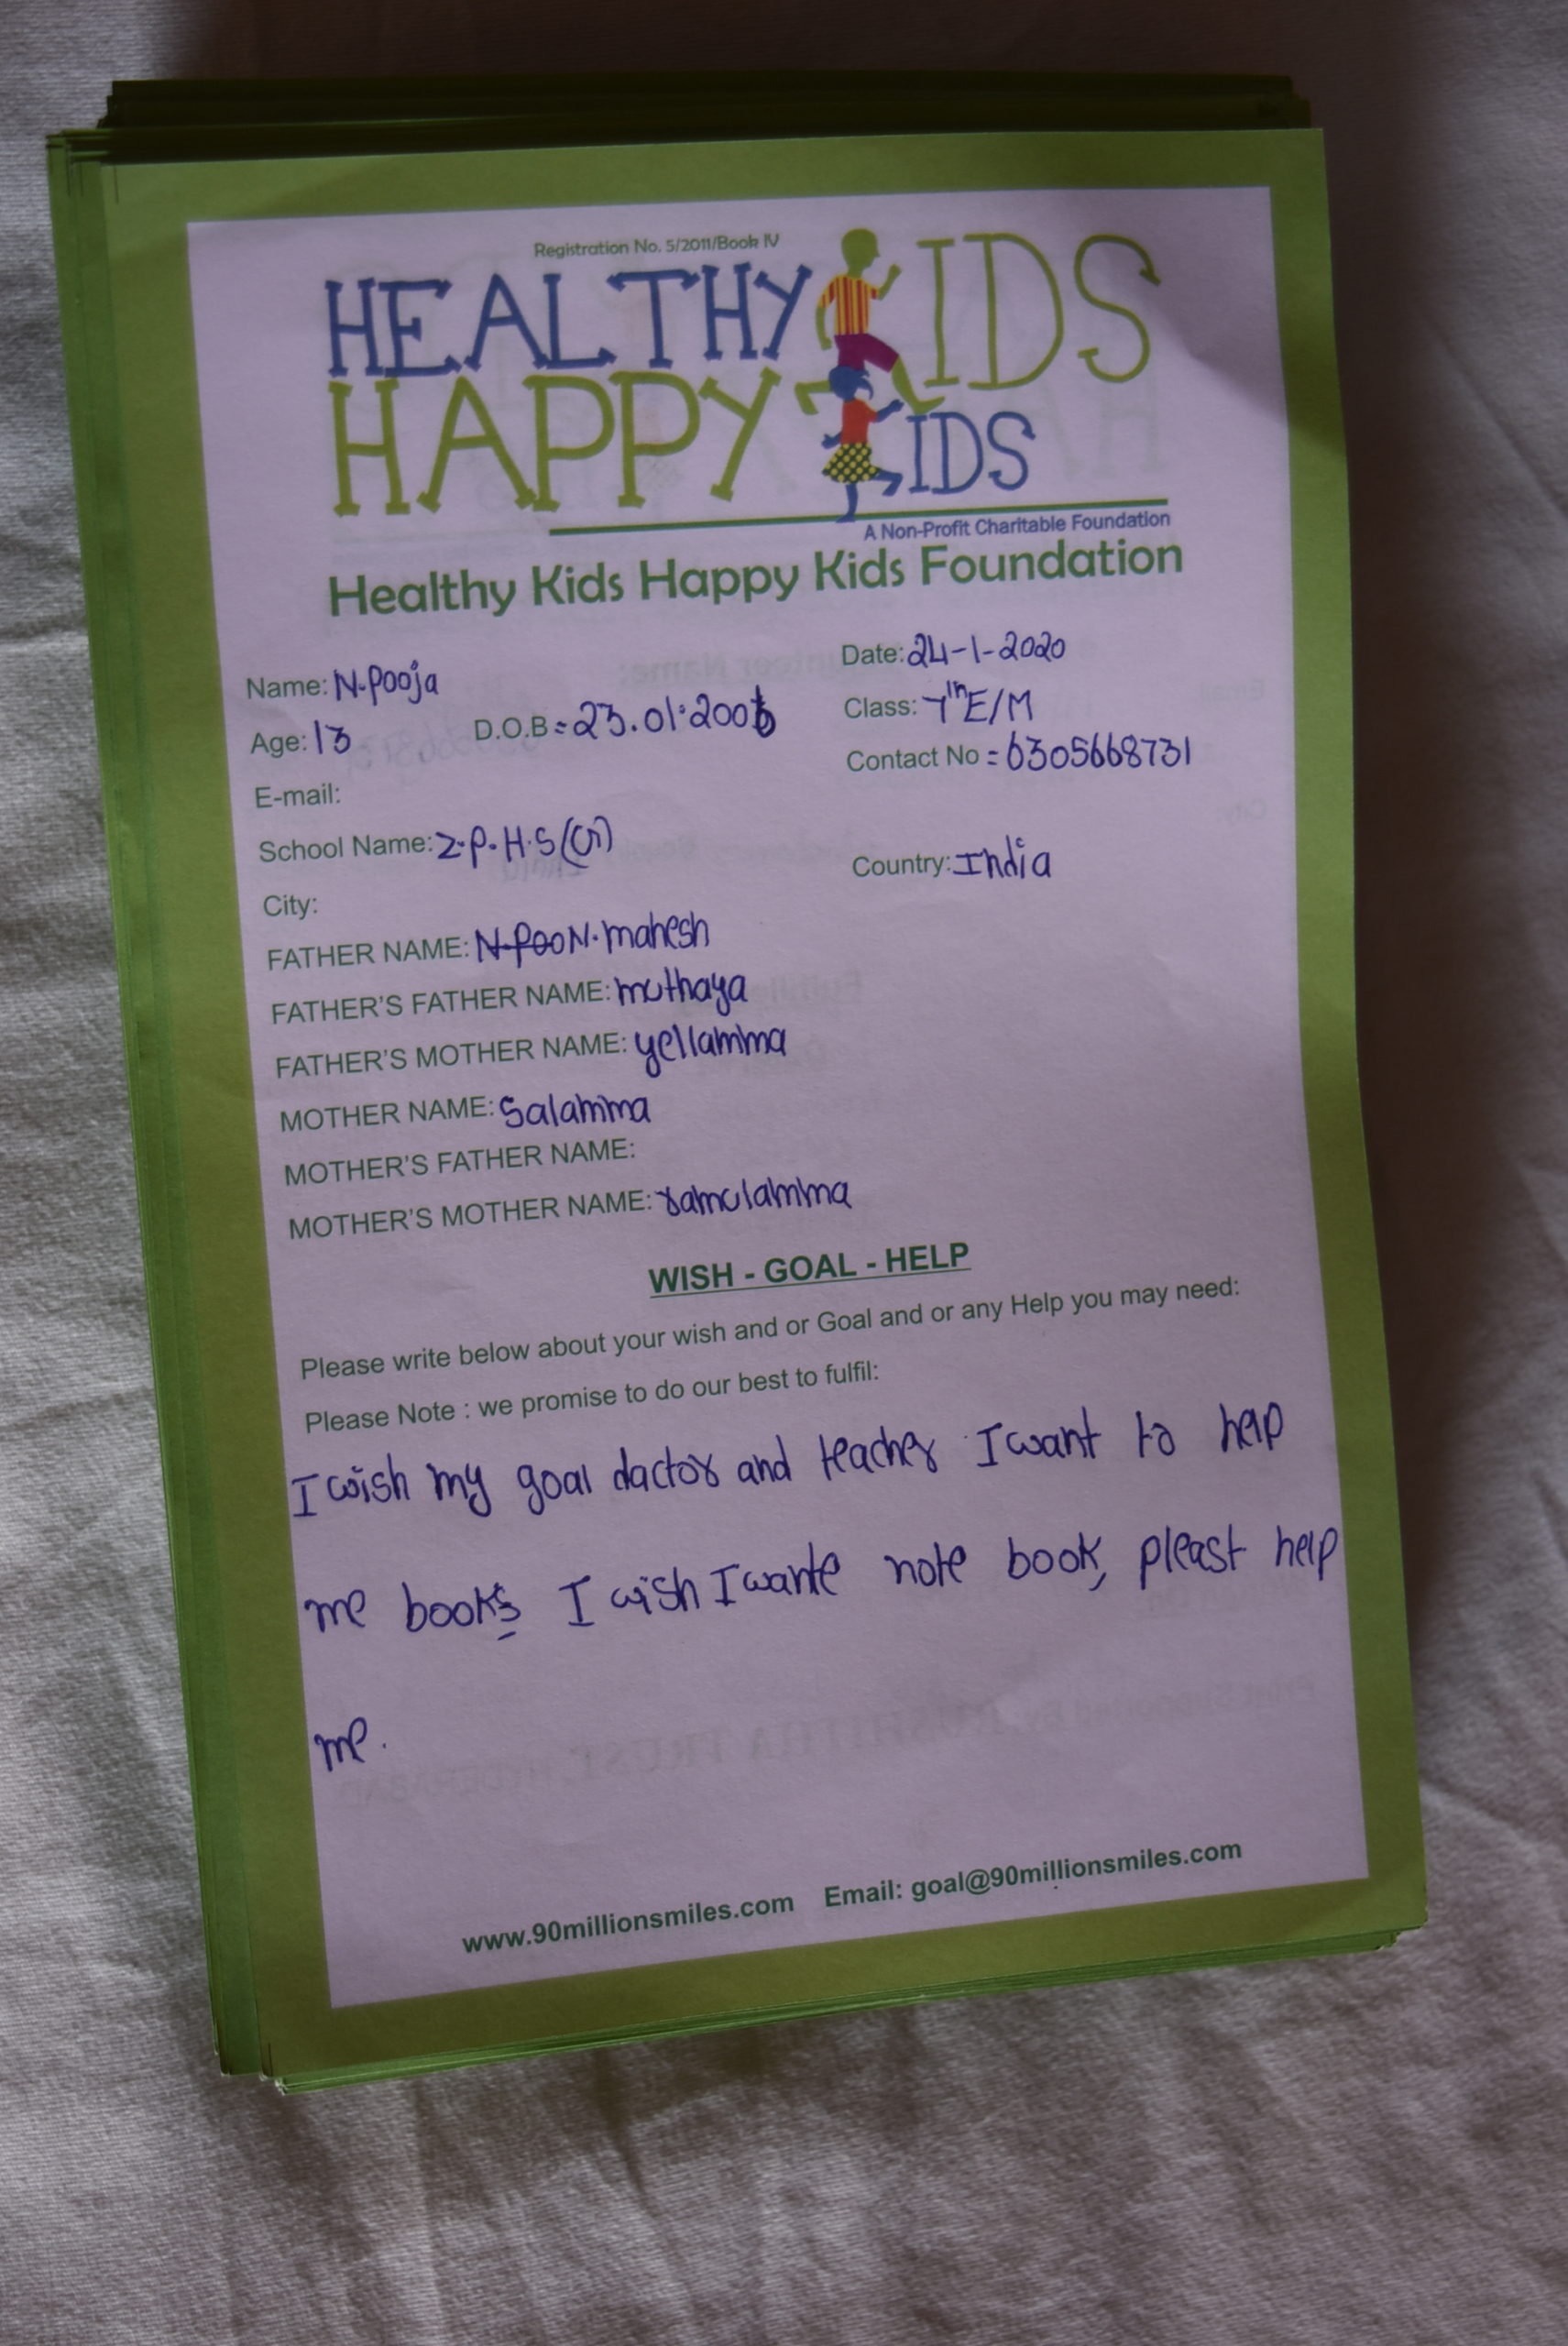 Registration No. 5/2011/Book IV
HEALTHY KIDS
HAPPY KIDS
A Non-Profit Charitable Foundation
Healthy Kids Happy Kids Foundation
Name: N.pooja
Date: 24-1-2020
Age: 13 D.O.B = 23.01.2006
Class: 7th E/M
Contact No = 6305668731
E-mail:
School Name: Z.P.H.S (G)
Country: India
City:
FATHER NAME: N.poo N.mahesh
FATHER'S FATHER NAME: muthaya
FATHER'S MOTHER NAME: yellamma
MOTHER NAME: Salamma
MOTHER'S FATHER NAME:
MOTHER'S MOTHER NAME: ramulamma
WISH - GOAL - HELP
Please write below about your wish and or Goal and or any Help you may need:
Please Note : we promise to do our best to fulfil:
I wish my goal dactor and teacher I want to help
me books I wish I wante note book, pleast help
me.
www.90millionsmiles.com Email: goal@90millionsmiles.com